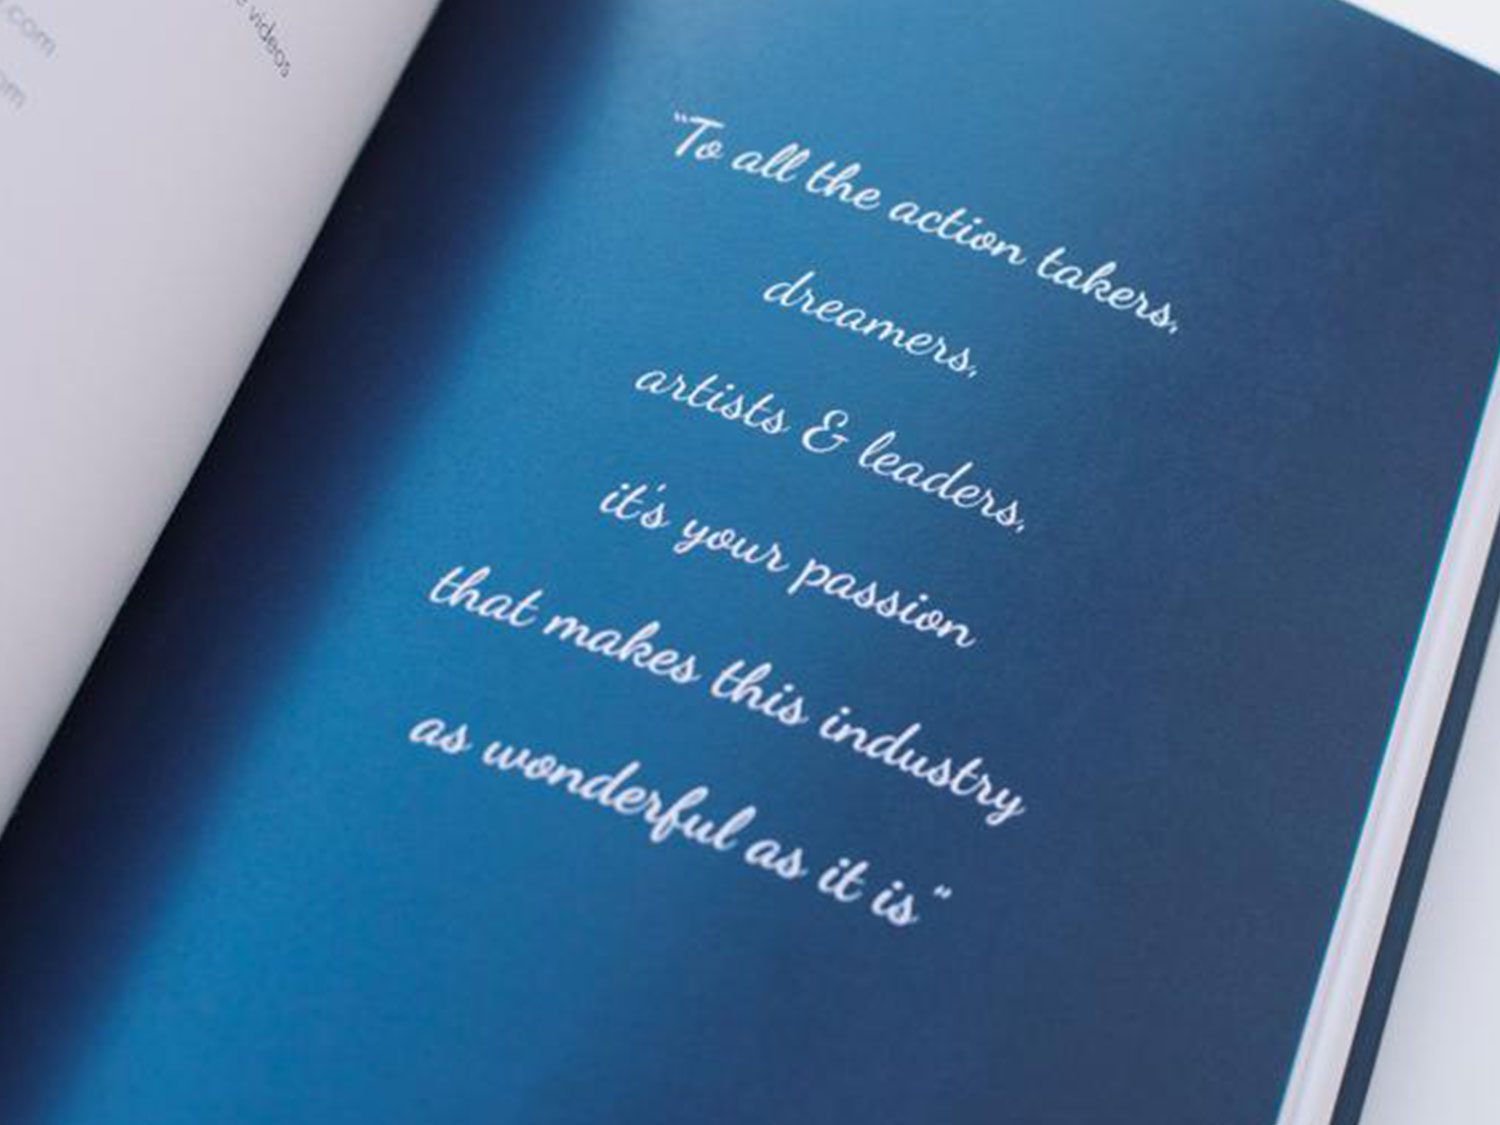 videos
.com
"To all the action takers,
dreamers,
artists & leaders,
it's your passion
that makes this industry
as wonderful as it is"